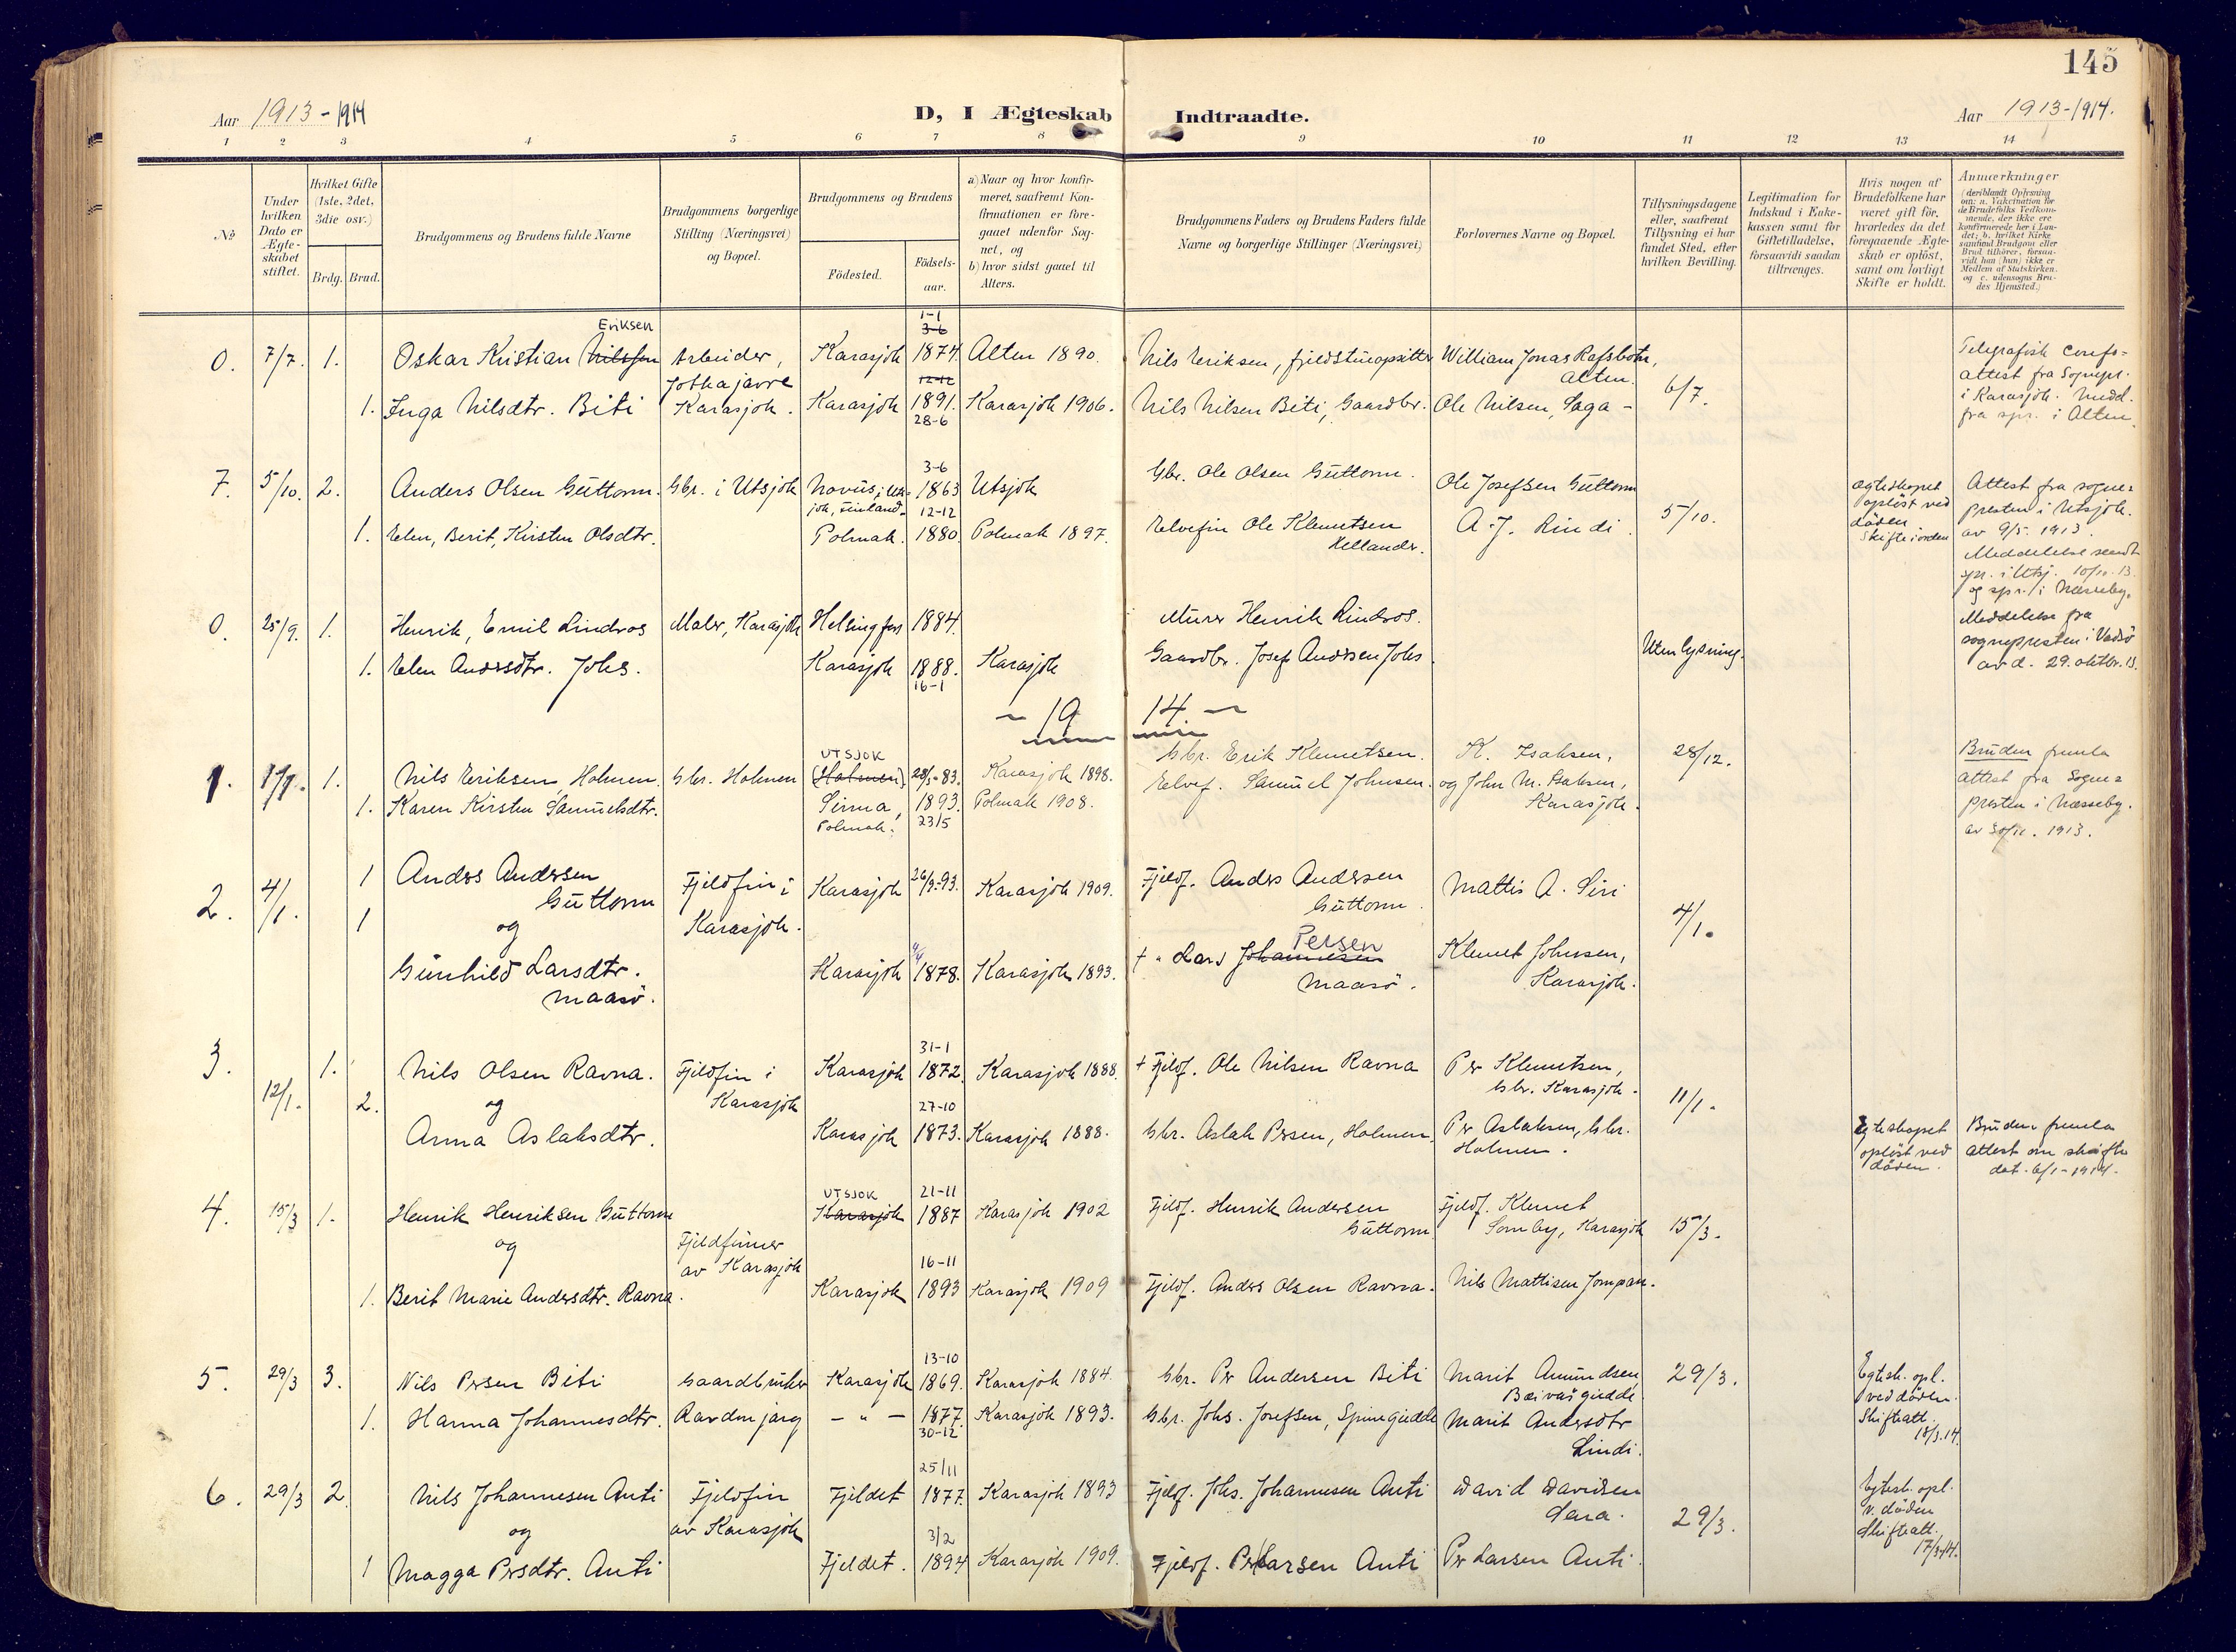 145
Aar 1913-1914
D, I Ægteskab
Indtraadte.
Aar 1913-1914.
1 2 3 4 5 6 7 8 9 10 11 12 13 14
№
Under
hvilken
Dato er
Ægte-
skabet
stiftet.
Hvilket Gifte
(1ste, 2det,
3die osv.)
Brdg. Brud.
Brudgommens og Brudens fulde Navne
Brudgommens borgerlige
Stilling (Næringsvei)
og Bopæl.
Brudgommens og Brudens
Födested.
Födsels-
aar.
a) Naar og hvor konfir-
meret, saafremt Kon-
firmationen er fore-
gaaet udenfor Sog-
net, og
b) hvor sidst gaaet til
Alters.
Brudgommens Faders og Brudens Faders fulde
Navne og borgerlige Stillinger (Næringsvei)
Forlovernes Navne og Bopæl.
Tillysningsdagene
eller, saafremt
Tillysning ei har
fundet Sted, efter
hvilken Bevilling.
Legitimation for
Indskud i Enke-
kassen samt for
Giftetilladelse,
forsaavidt saadan
tiltrænges.
Hvis nogen af
Brudefolkene har
været gift för,
hvorledes da det
foregaaende Ægte-
skab er oplöst,
samt om lovligt
Skifte er holdt.
Anmærkninger
(deriblandt Oplysning
om: a. Vaksination for
de Brudefolks Vedkom-
mende, der ikke ere
konfirmerede her i Lan-
det; b. hvilket Kirke
samfund Brudgom eller
Brud tilhörer, forsaa-
vidt han (hun) ikke er
Medlem af Statskirken.
og c. udensogns Bru-
des Hjemsted.)
Eriksen
1-1
3-6
0. 7/7. 1. Oskar Kristian Nilssen Arbeider, Karasjok 1874. Alten 1890. Nils Eriksen, fjeldstueopsitter William Jonas Rafsbotn,
Jotkajavre 12-12 Alten.
1. Inga Nilsdtr. Biti Karasjok. Karasjok 1891. Karasjok 1906. Nils Nilsen Biti, Gaardbr. Ole Nilsen, Saga - 6/7.
28-6
Telegrafisk
attest fra Sognepr.
i Karasjok. Medd.
fra spr. i Alten.
3-6
7. 5/10. 2. Anders Olsen Guttorm. Gbr. i Utsjok Novus, i Uts- 1863 Utsjok Gbr. Ole Olsen Guttorm. Ole Josefsen Guttorm
jok, Finland. 12-12
1. Elen, Berit, Kirsten Olsdtr. Polmak. 1880. Polmak 1897. Elvefin Ole Klemetsen A. J. Lindi. 5/10.
Hellander.
Ægteskapet
opløst ved
døden
Skifte i orden
Attest fra sogne-
presten i Utsjok.
av 9/5. 1913.
Meddelelse sendt
spr. i Utsj. 10/10. 13.
og spr. i Næsseby.
0. 25/9. 1. Henrik, Emil Lindros Maler, Karasjok Helsingfors 1884. Murer Henrik Lindros.
1. Elen Andersdtr. Johs. Karasjok 1888. Karasjok Gaardbr. Josef Andersen Johs Uten lysning.
16-1
Meddelelse fra
sognepresten i Vadsö
av d. 29. oktbr. 13.
- 19 14. -
UTSJOK
1. 1/1. 1. Nils Eriksen, Holmen. Gbr. Holmen (Holmen) 28/5-83. Karasjok 1898. Gbr. Erik Klemetsen. K. Isaksen, 28/12.
1. Karen Kirsten Samuelsdtr. Sirma, 1893. Polmak 1908. Elvef. Samuel Johnsen. og John M. Isaksen,
Polmak. 23/5 Karasjok.
Bruden
attest fra Sogne-
presten i Næsseby.
av 30/12. 1913.
2. 4/1. 1 Anders Andersen Fjeldfin i Karasjok 26/9-93. Karasjok 1909. Fjeldf. Anders Andersen Mattis A. Siri
1 Guttorm Karasjok. Guttorm. 4/1.
og
Persen
Gunhild Larsdtr. Karasjok 4/4 1878. Karasjok 1893. † " Lars Johannesen Klemet Johnsen,
Maasö. Maasö. Karasjok.
31-1
3. 12/1. 1. Nils Olsen Ravna. Fjeldfin i Karasjok 1872. Karasjok 1888. † Fjeldf. Ole Nilsen Ravna Per Klemetsen,
2. og Karasjok 27-10 Gbr. Karasjok. 11/1.
Anna Aslaksdtr. Karasjok 1873. Karasjok 1888. Gbr. Aslak Persen, Holmen. Per Aslaksen, Gbr.
Holmen.
Egteskapet
opløst ved
døden.
Bruden
attest om skifte
dat. 6/1-1914.
UTSJOK 21-11
4. 15/3 1. Henrik Henriksen Guttorm Karasjok 1887 Karasjok 1902 Fjeldf. Henrik Andersen Fjeldf. Klemet
og Fjeldfinner Guttorm Somby, Karasjok 15/3.
av Karasjok 16-11
1. Berit Marie Andersdtr. Ravna. Karasjok 1893 Karasjok 1909 Fjeldf. Anders Olsen Ravna. Nils Mattisen Jompan.
13-10
5. 29/3 3. Nils Persen Biti Gaardbruker Karasjok 1869. Karasjok 1884. Gbr. Per Andersen Biti Marit Amundsen 29/3.
Bæivasgiedde
1. Hanna Johannesdtr. Ravdnjarg - " - 1877. Karasjok 1893. Gbr. Johs. Josefsen, Spinegiedde Marit Andersdtr
30-12 Lindi.
Egtesk. opl.
ved døden.
Skifteatt.
18/3.14.
25/11
6. 29/3 2. Nils Johannesen Anti Fjeldfin Fjeldet 1877. Karasjok 1893 Fjeldf. Johs. Johannesen Anti David Davidsen
og av Karasjok 3/2 Sara. 29/3.
1 Magga Persdtr. Anti Fjeldet. 1894 Karasjok 1909. Fjeldf. Per Larsen Anti Per Larsen Anti.
Egtesk. opl.
v. døden
Skifteatt.
17/3.14.